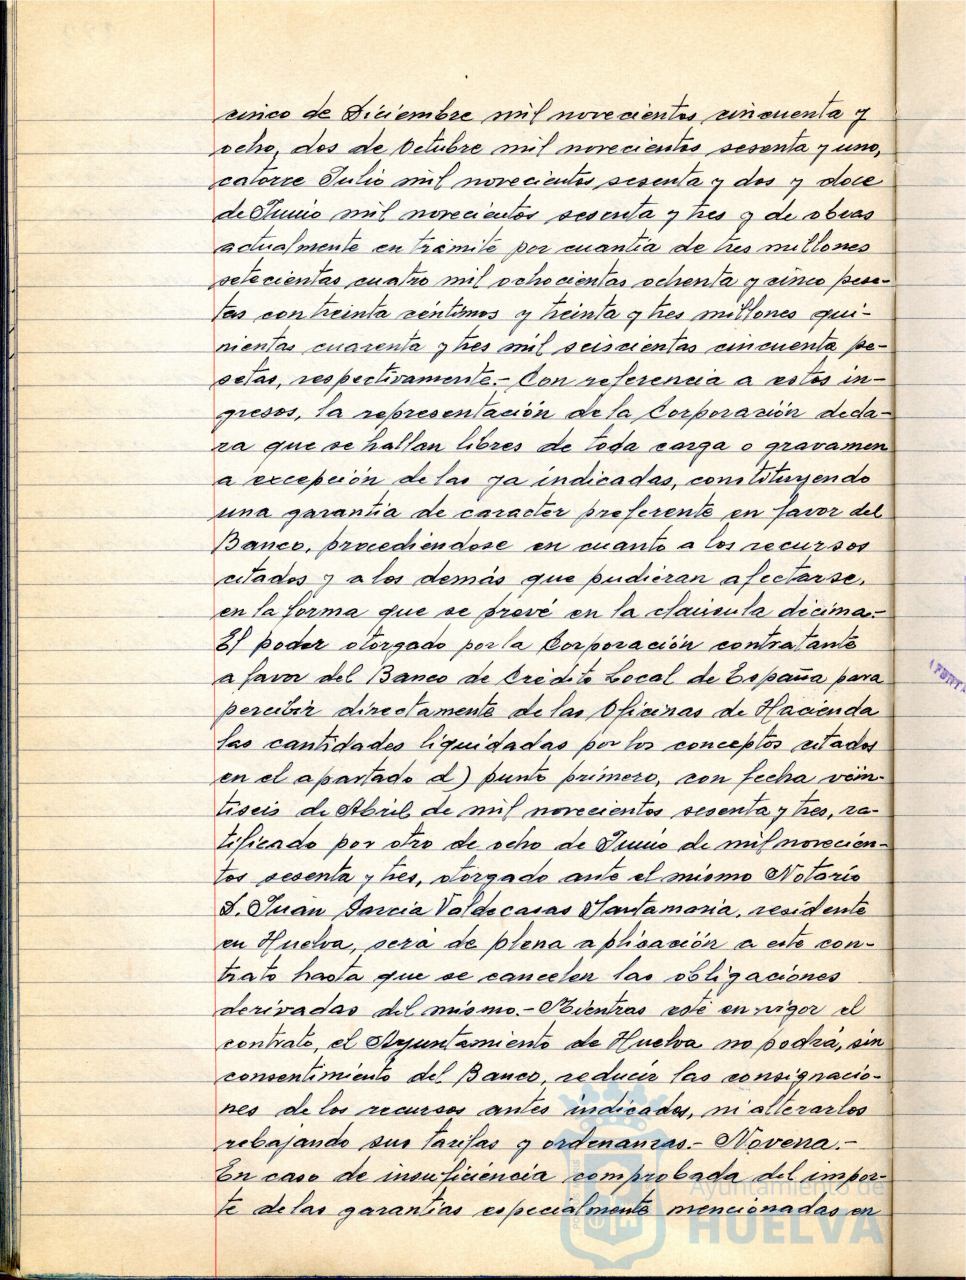 cinco de Diciembre mil novecientos cincuenta y
ocho, dos de Octubre mil novecientos sesenta y uno,
catorce Julio mil novecientos sesenta y dos y doce
de Junio mil novecientos sesenta y tres y de obras
actualmente en trámite por cuantía de tres millones
setecientas cuatro mil ochocientas ochenta y cinco pese-
tas con treinta céntimos y treinta y tres millones qui-
nientas cuarenta y tres mil seiscientas cincuenta pe-
setas, respectivamente.- Con referencia a estos in-
gresos, la representación de la Corporación decla-
ra que se hallan libres de toda carga o gravamen
a excepción de las ya indicadas, constituyendo
una garantía de caracter preferente en favor del
Banco, procediéndose en cuanto a los recursos
citados y a los demás que pudieran afectarse,
en la forma que se prevé en la clausula décima.-
El poder otorgado por la Corporación contratante
a favor del Banco de Crédito Local de España para
percibir directamente de las Oficinas de Hacienda
las cantidades liquidadas por los conceptos citados
en el apartado d) punto primero, con fecha vein-
tiseis de Abril de mil novecientos sesenta y tres, ra-
tificado por otro de ocho de Junio de mil novecien-
tos sesenta y tres, otorgado ante el mismo Notario
D. Juan Garcia Valdecasas Santamaria, residente
en Huelva, será de plena aplicación a este con-
trato hasta que se cancelen las obligaciones
derivadas del mismo.- Mientras esté en vigor el
contrato, el Ayuntamiento de Huelva no podrá, sin
consentimiento del Banco, reducir las consignacio-
nes de los recursos antes indicados, ni alterarlos
rebajando sus tarifas y ordenanzas.- Novena.-
En caso de insuficiencia comprobada del impor-
te de las garantías especialmente mencionadas en
Ayuntamiento de
HUELVA